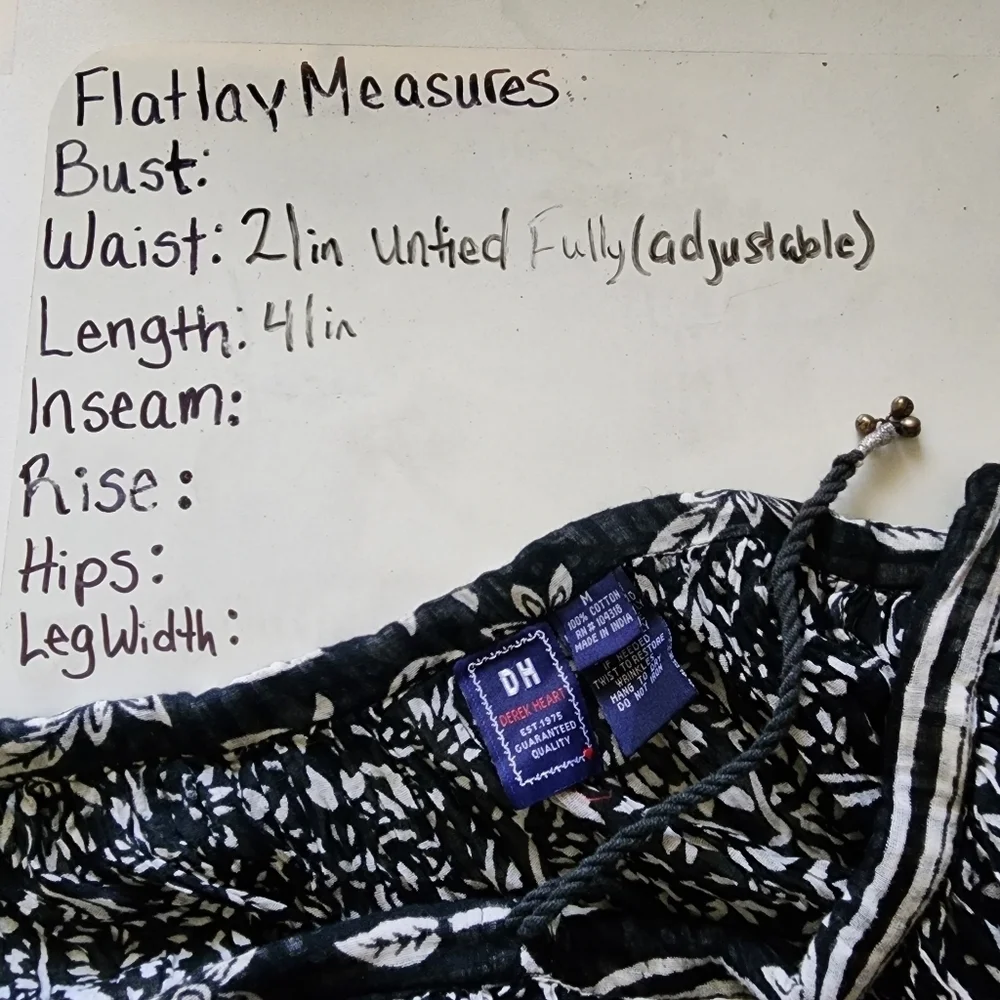 Flatlay Measures
Bust:
Waist: 21in Untied Fully (adjustable)
Length: 41in
Inseam:
Rise:
Hips:
Leg Width:
M
100% COTTON
RN# 104316
MADE IN INDIA
DH
DEREK HEART
EST. 1975
GUARANTEED
QUALITY
IF NEEDED
TWIST TO RESTORE
WRINKLES
HANG TO DRY
DO NOT IRON